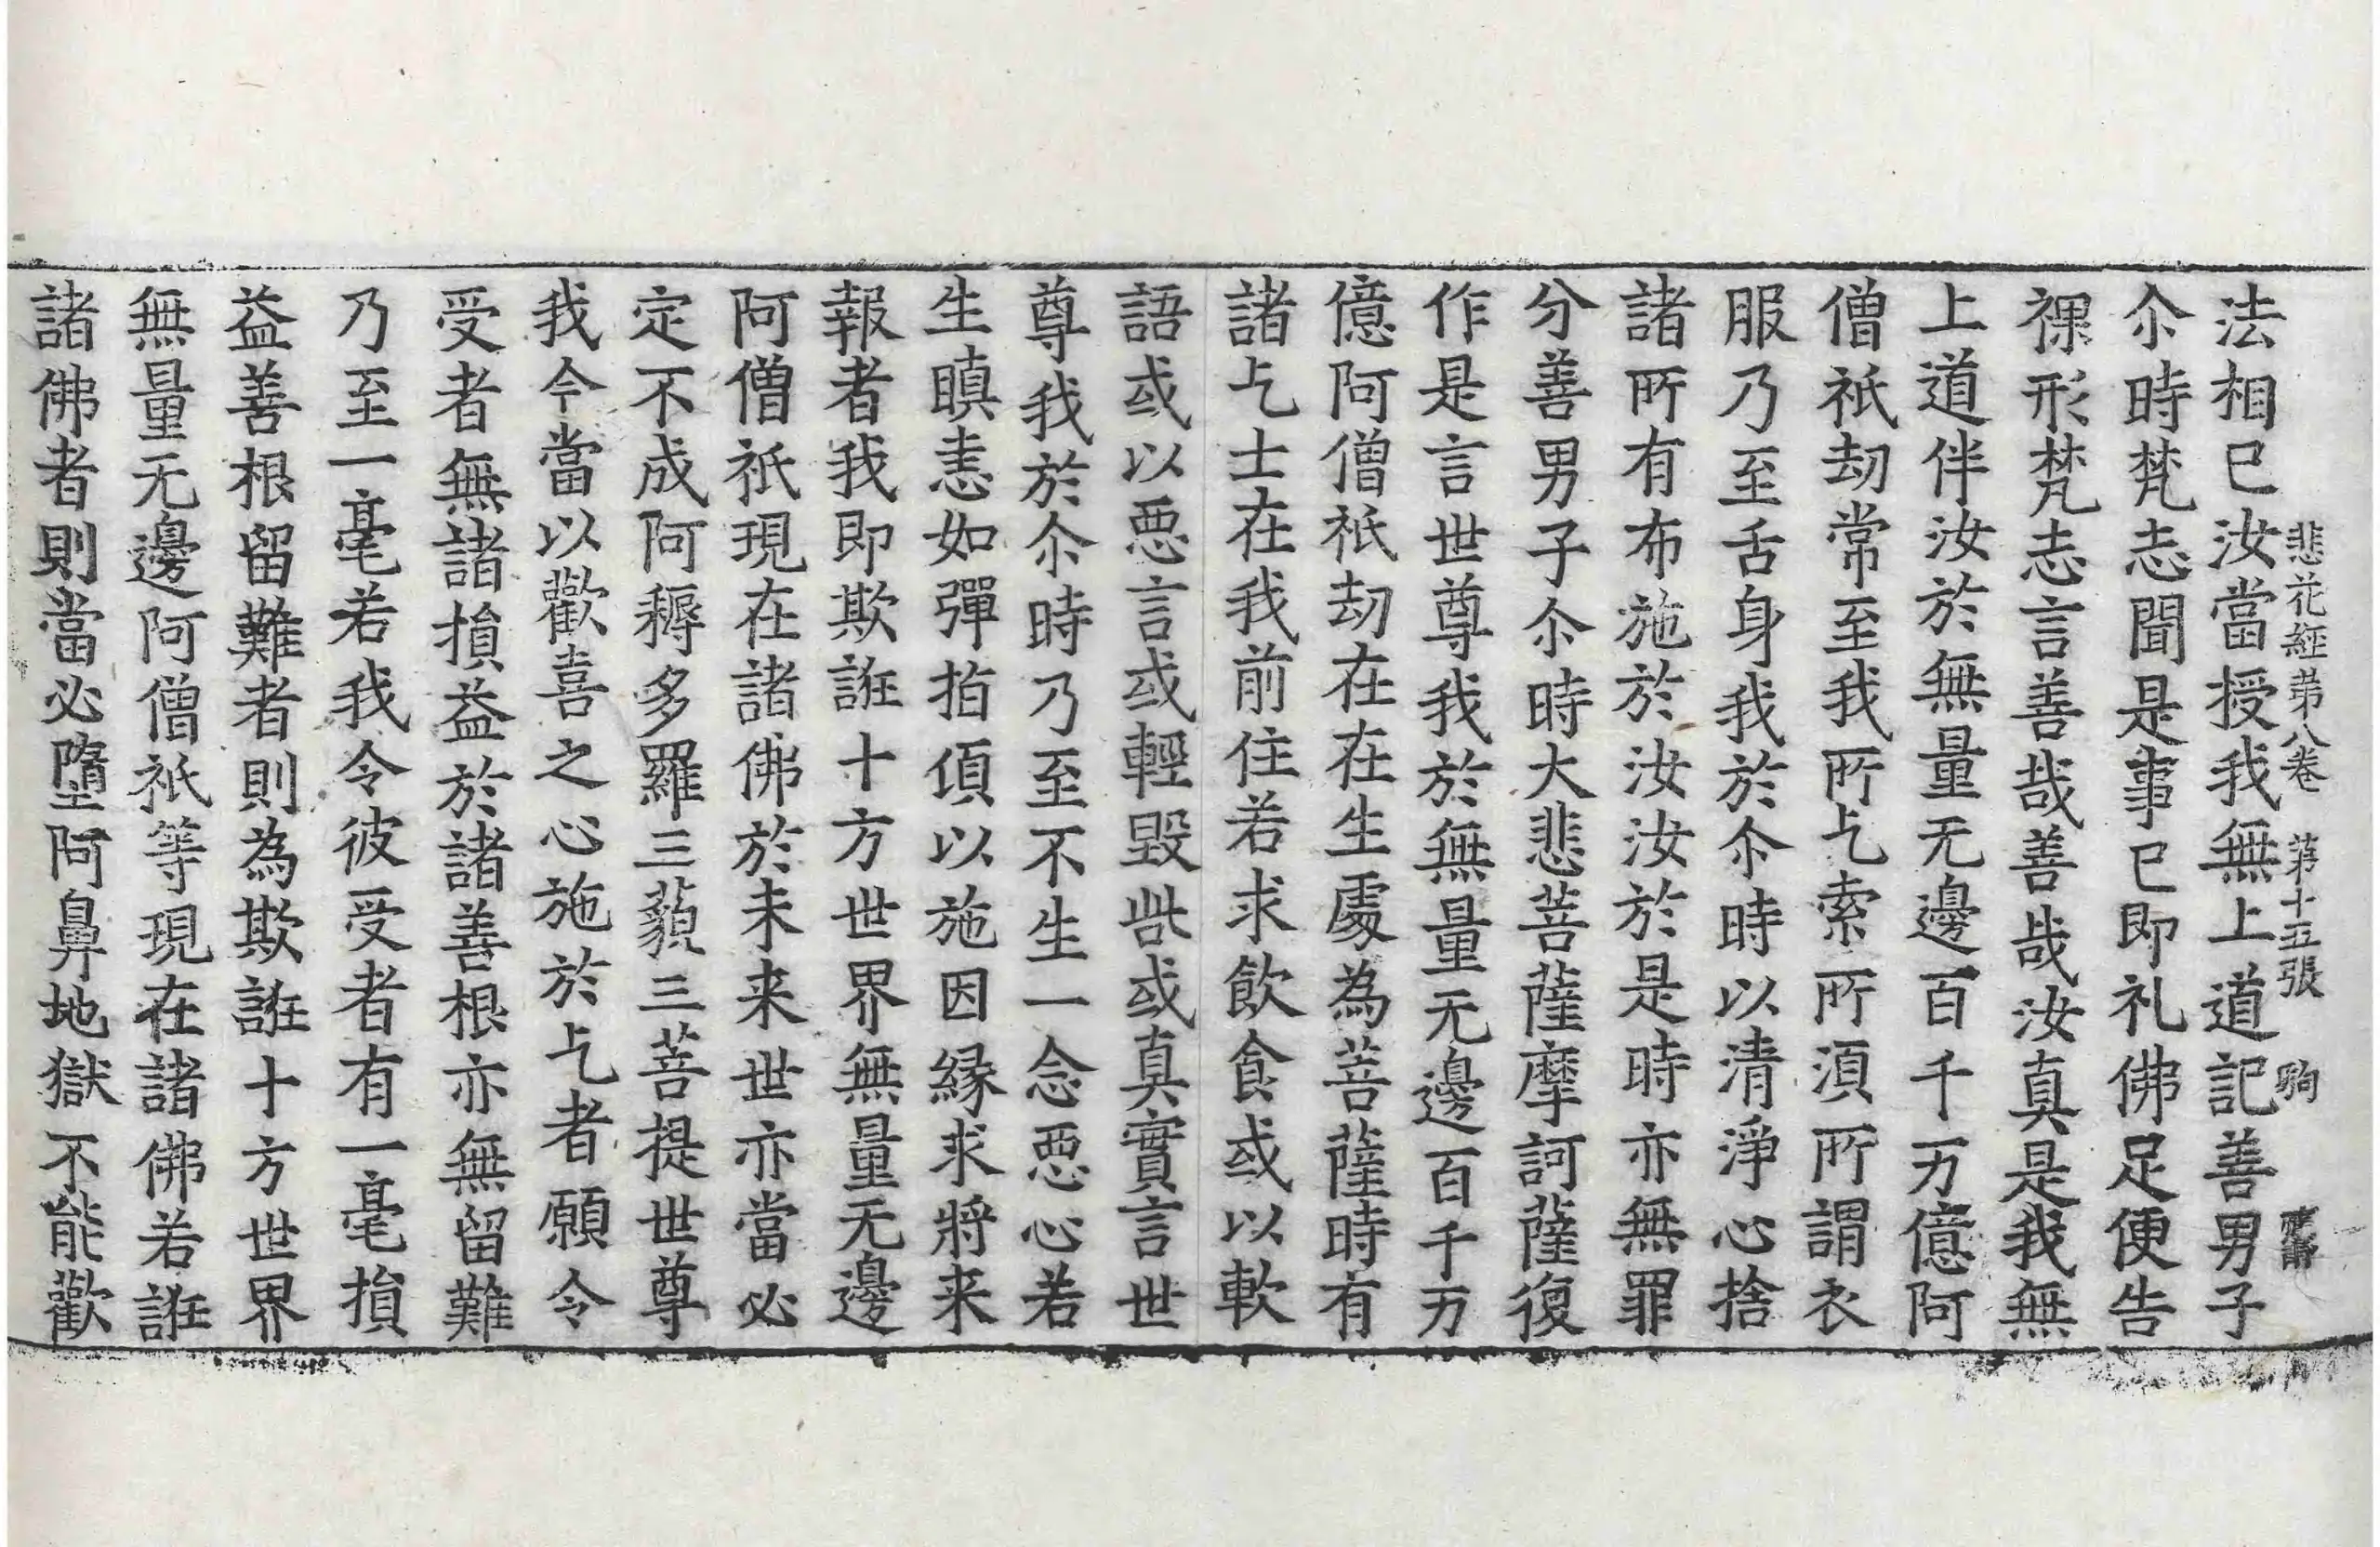 悲花經第八卷　第十五張　駒
法相已汝當授我無上道記善男子
尒時梵志聞是事已即礼佛足便告
祼形梵志言善哉善哉汝真是我無
上道伴汝於無量无邊百千万億阿
僧祇劫常至我所乞索所須所謂衣
服乃至舌身我於尒時以清淨心捨
諸所有布施於汝汝於是時亦無罪
分善男子尒時大悲菩薩摩訶薩復
作是言世尊我於無量无邊百千万
億阿僧祇劫在在生處為菩薩時有
諸乞士在我前住若求飲食或以軟
語或以惡言或輕毀呰或真實言世
尊我於尒時乃至不生一念惡心若
生瞋恚如彈指頃以施因緣求將来
報者我即欺誑十方世界無量无邊
阿僧祇現在諸佛於未来世亦當必
定不成阿耨多羅三藐三菩提世尊
我今當以歡喜之心施於乞者願令
受者無諸損益於諸善根亦無留難
乃至一毫若我令彼受者有一毫損
益善根留難者則為欺誑十方世界
無量无邊阿僧祇等現在諸佛若誑
諸佛者則當必墮阿鼻地獄不能歡